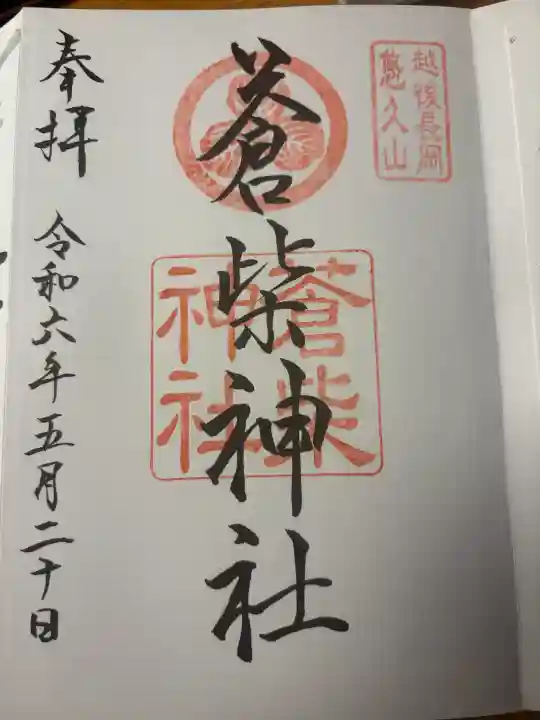 越後長岡
悠久山
蒼柴神社
蒼柴
神社
奉拝 令和六年五月二十日